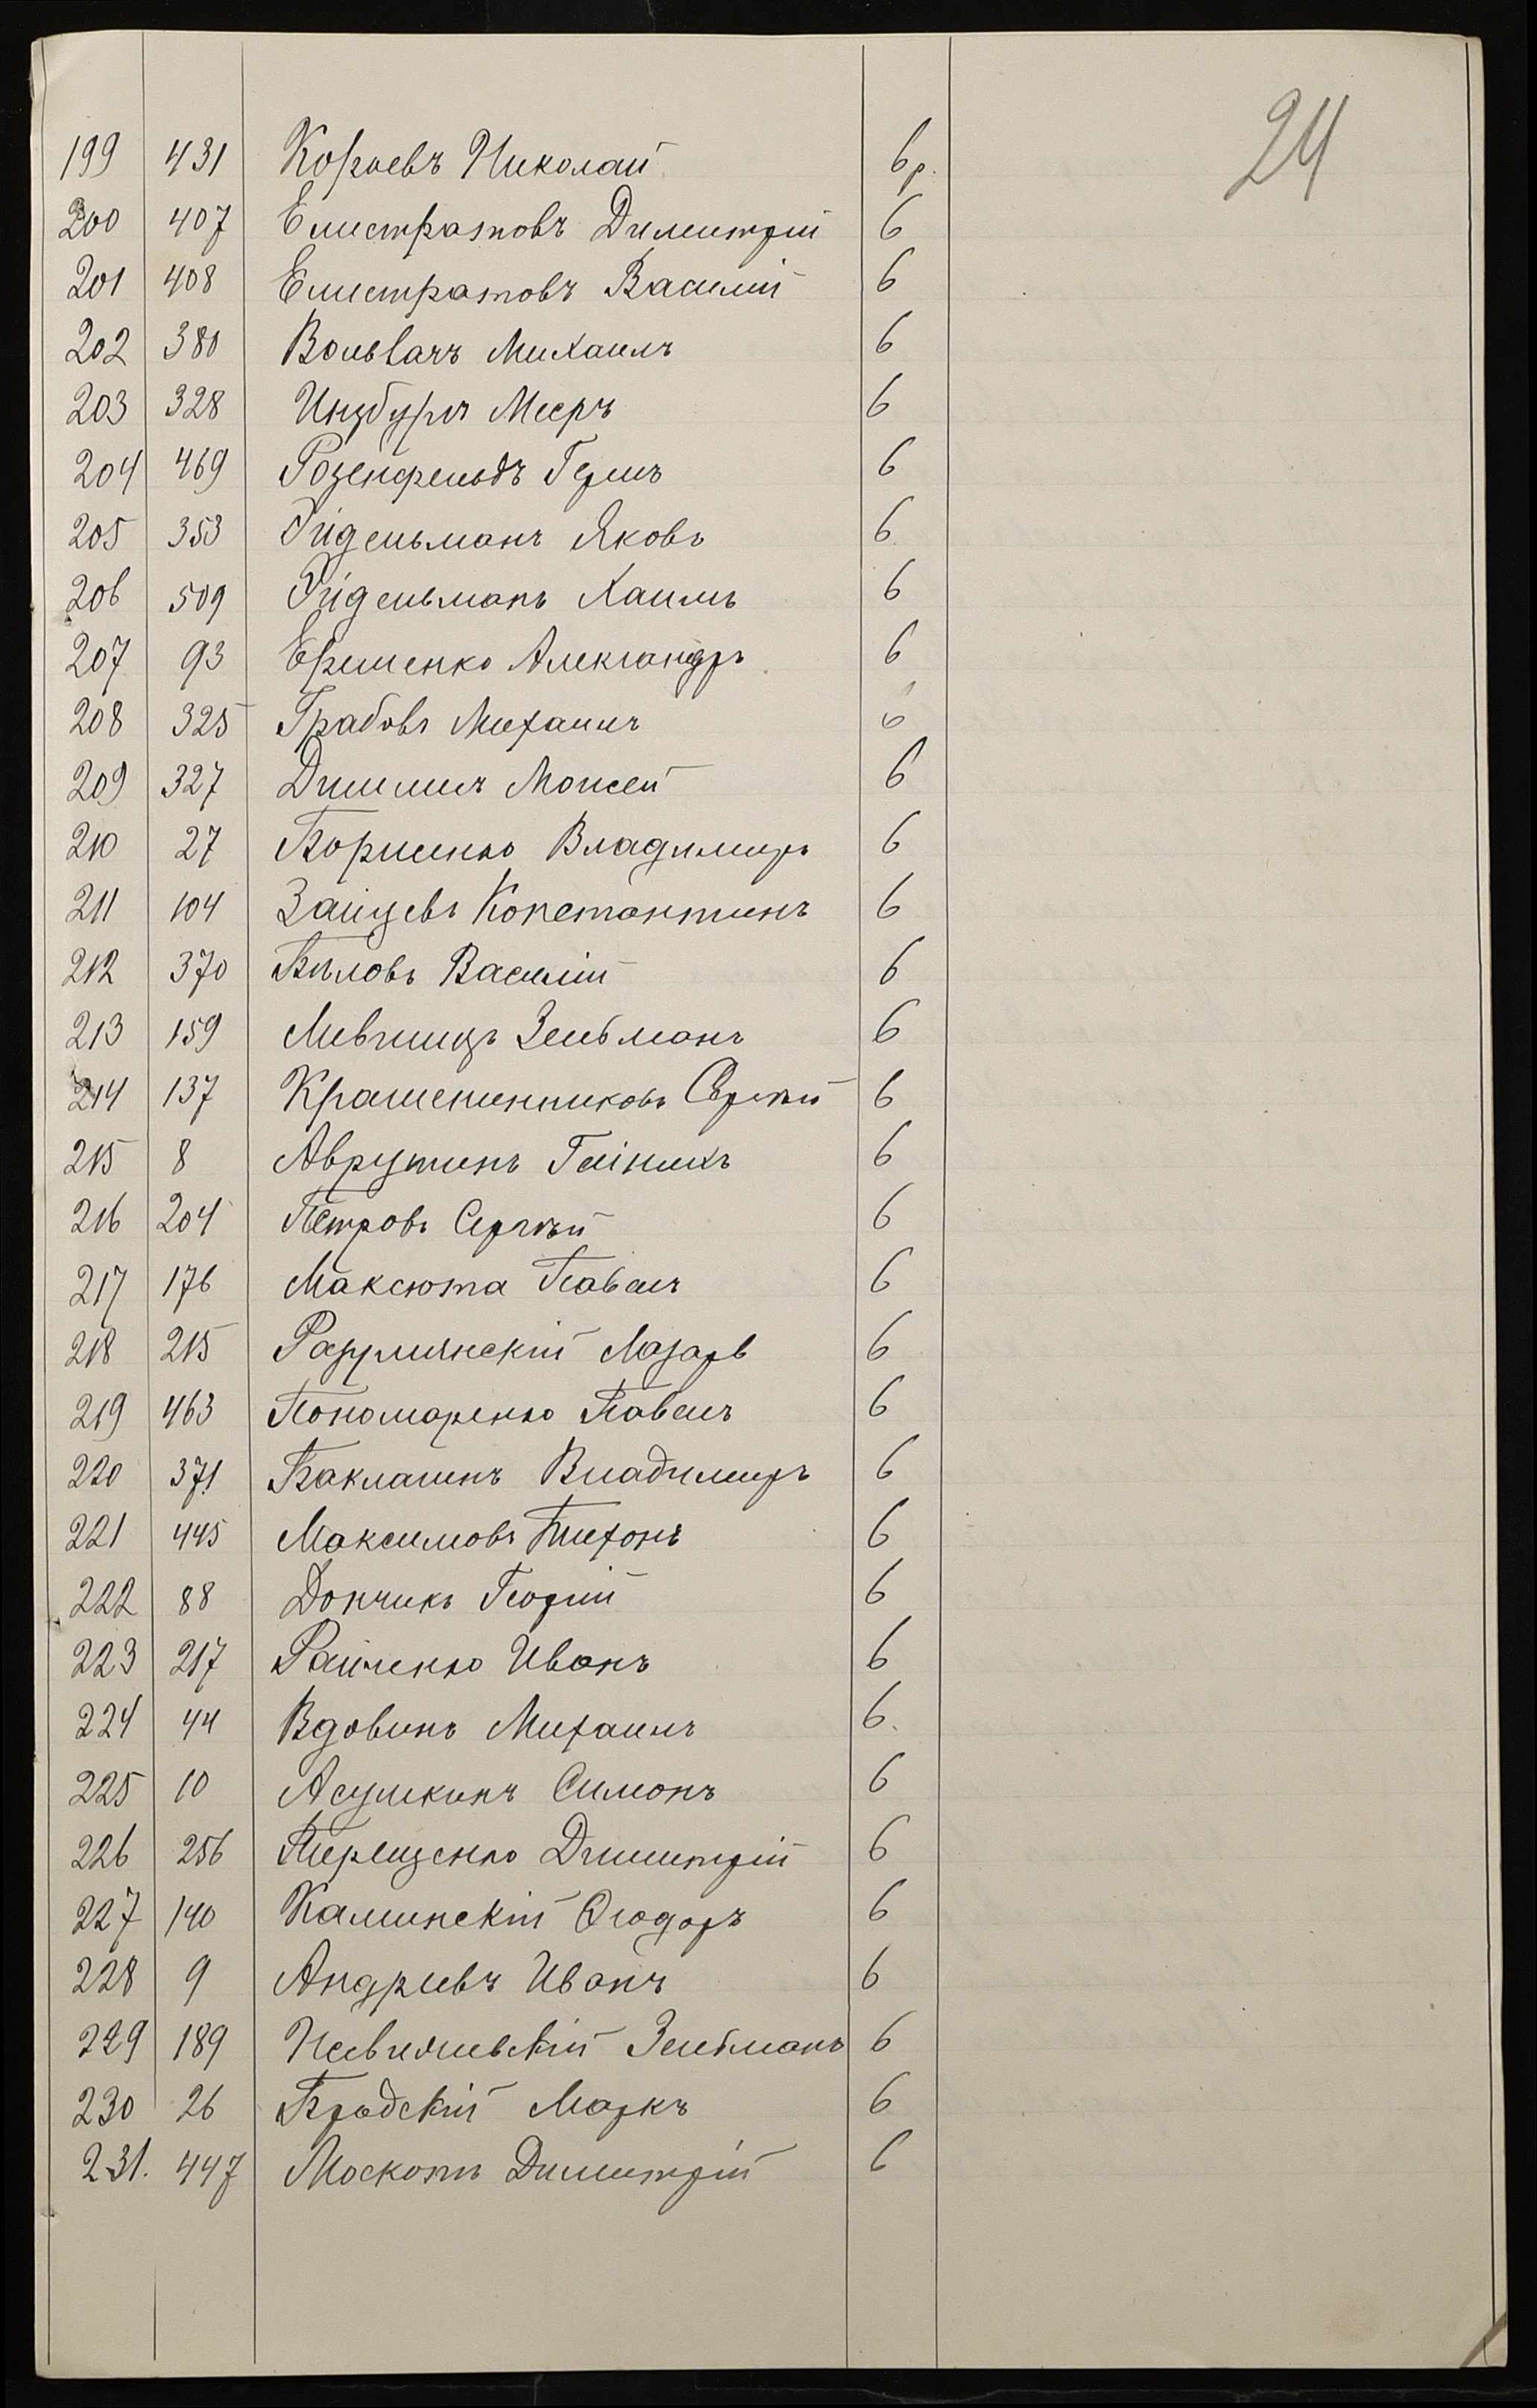 24
199 431 Короевъ Николай 6 р.
200 407 Елистратовъ Димитрій 6
201 408 Елистратовъ Василій 6
202 380 Вольвачъ Михаилъ 6
203 328 Инзбургъ Мееръ 6
204 469 Розенфельдъ Герш 6
205 353 Эйдельманъ Яковъ 6
206 509 Эйдельманъ Хаимъ 6
207 93 Еременко Александръ 6
208 325 Грабовъ Михаилъ 6
209 327 Моисей 6
210 27 Борисенко Владимиръ 6
211 104 Зайцевъ Константинъ 6
212 370 Бѣловъ Василій 6
213 159 Лившицъ Зельманъ 6
214 137 Крашенинниковъ Сергѣй 6
215 8 Аврутинъ Гейнихъ 6
216 204 Петровъ Сергѣй 6
217 176 Максюта Павелъ 6
218 215 Лазарь 6
219 463 Пономаренко Павелъ 6
220 371 Баклагинъ Владимиръ 6
221 445 Максимовъ Тихонъ 6
222 88 Дончикъ Георгій 6
223 217 Райченко Иванъ 6
224 44 Вдовинъ Михаилъ 6
225 10 Асушкинъ Симонъ 6
226 256 Терещенко Димитрій 6
227 140 Каминскій Ѳеодоръ 6
228 9 Андреевъ Иванъ 6
229 189 Зельманъ 6
230 26 Бродскій Маркъ 6
231. 447 Москотъ Димитрій 6